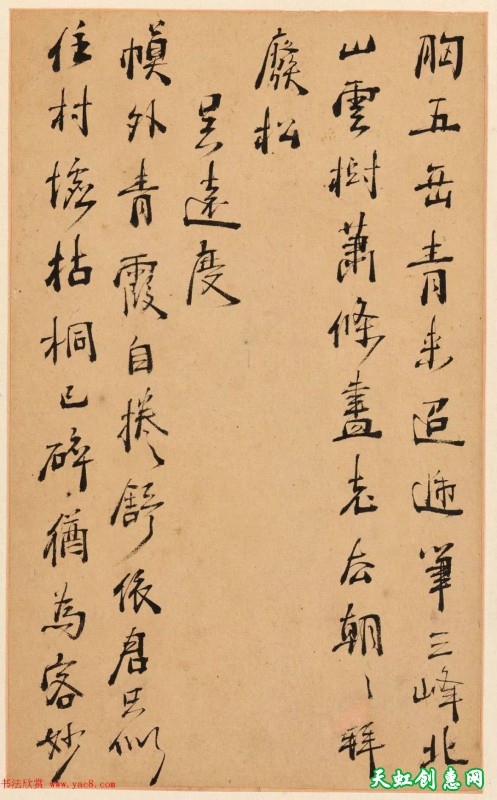 胸五岳青来迢遞筆三峰北
山雲樹蕭條盡老去朝〻拜
廢松
吴遠度
幀外青霞自捲舒依君只似
住村墟枯桐已碎猶為客妙
书法欣赏 www.yac8.com
天虹创意网